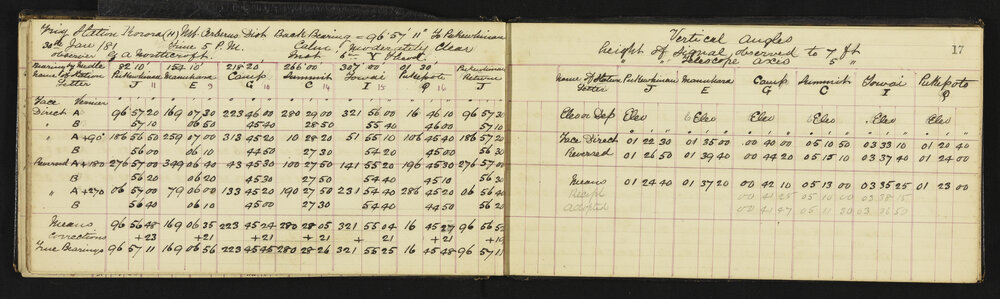 Trig Station Korora (H) Mt. Cerberus Dist Back Bearing = 96° 57' 11" To Pukewhinau
30th Jan 181 Time 5 P.M. Calm, moderately Clear
Observer G A Northcroft. Inst 6"
Bearing of Needle 82 10' 154 15' 218 20' 266 00' 307 00 01 30' Pukewhinau
Name of Station Pukewhinau Manuhara Camp Summit Towai Pukepoto Return
Letter J 11 E 9 G 10 C 14 I 15 Q 16 J
Face Vernier
Direct A 96 57 20 169 07 30 223 46 00 280 29 00 321 56 00 16 46 10 96 57 30
" B 57 10 06 50 45 40 28 50 55 40 46 00 57 10
" A +90° 186 56 50 259 07 00 313 45 20 10 28 20 51 55 10 106 45 40 186 57 20
B 56 00 06 10 44 50 27 30 54 20 45 00 56 30
Reversed A +180 276 57 00 349 06 40 43 45 30 100 27 50 141 55 20 196 45 30 276 57 00
B 56 20 06 20 45 30 27 50 54 40 45 10 56 30
" A +270 06 57 00 79 06 00 133 45 20 190 27 50 231 54 40 286 45 20 06 56 40
" B 56 40 06 10 45 00 27 30 54 40 44 50 56 20
Means 96 56 48 169 06 35 223 45 24 280 28 05 321 55 04 16 45 27 96 56 50
Corrections +23 +21 +21 +21 +21 +21
True Bearings 96 57 11 169 06 56 223 45 45 280 28 26 321 55 25 16 45 48 96 57 11
17
Vertical Angles
Height of Signal observed to 7 ft
" " Telescope axis 5 "
Name of Station Pukewhinau Manuhara Camp Summit Towai Pukepoto
Letter J E G C I Q
Elev or Dep Elev Elev Elev Elev Elev Elev
Face Direct 01 22 30 01 35 00 00 40 00 05 10 50 03 33 10 01 20 40
Reversed 01 26 50 01 39 40 00 44 20 05 15 10 03 37 40 01 24 00
Means 01 24 40 01 37 20 00 42 10 05 13 00 03 35 25 01 23 00
Recip 00 41 25 05 10 00 03 38 15
Adopted 00 41 47 05 11 30 03 36 50